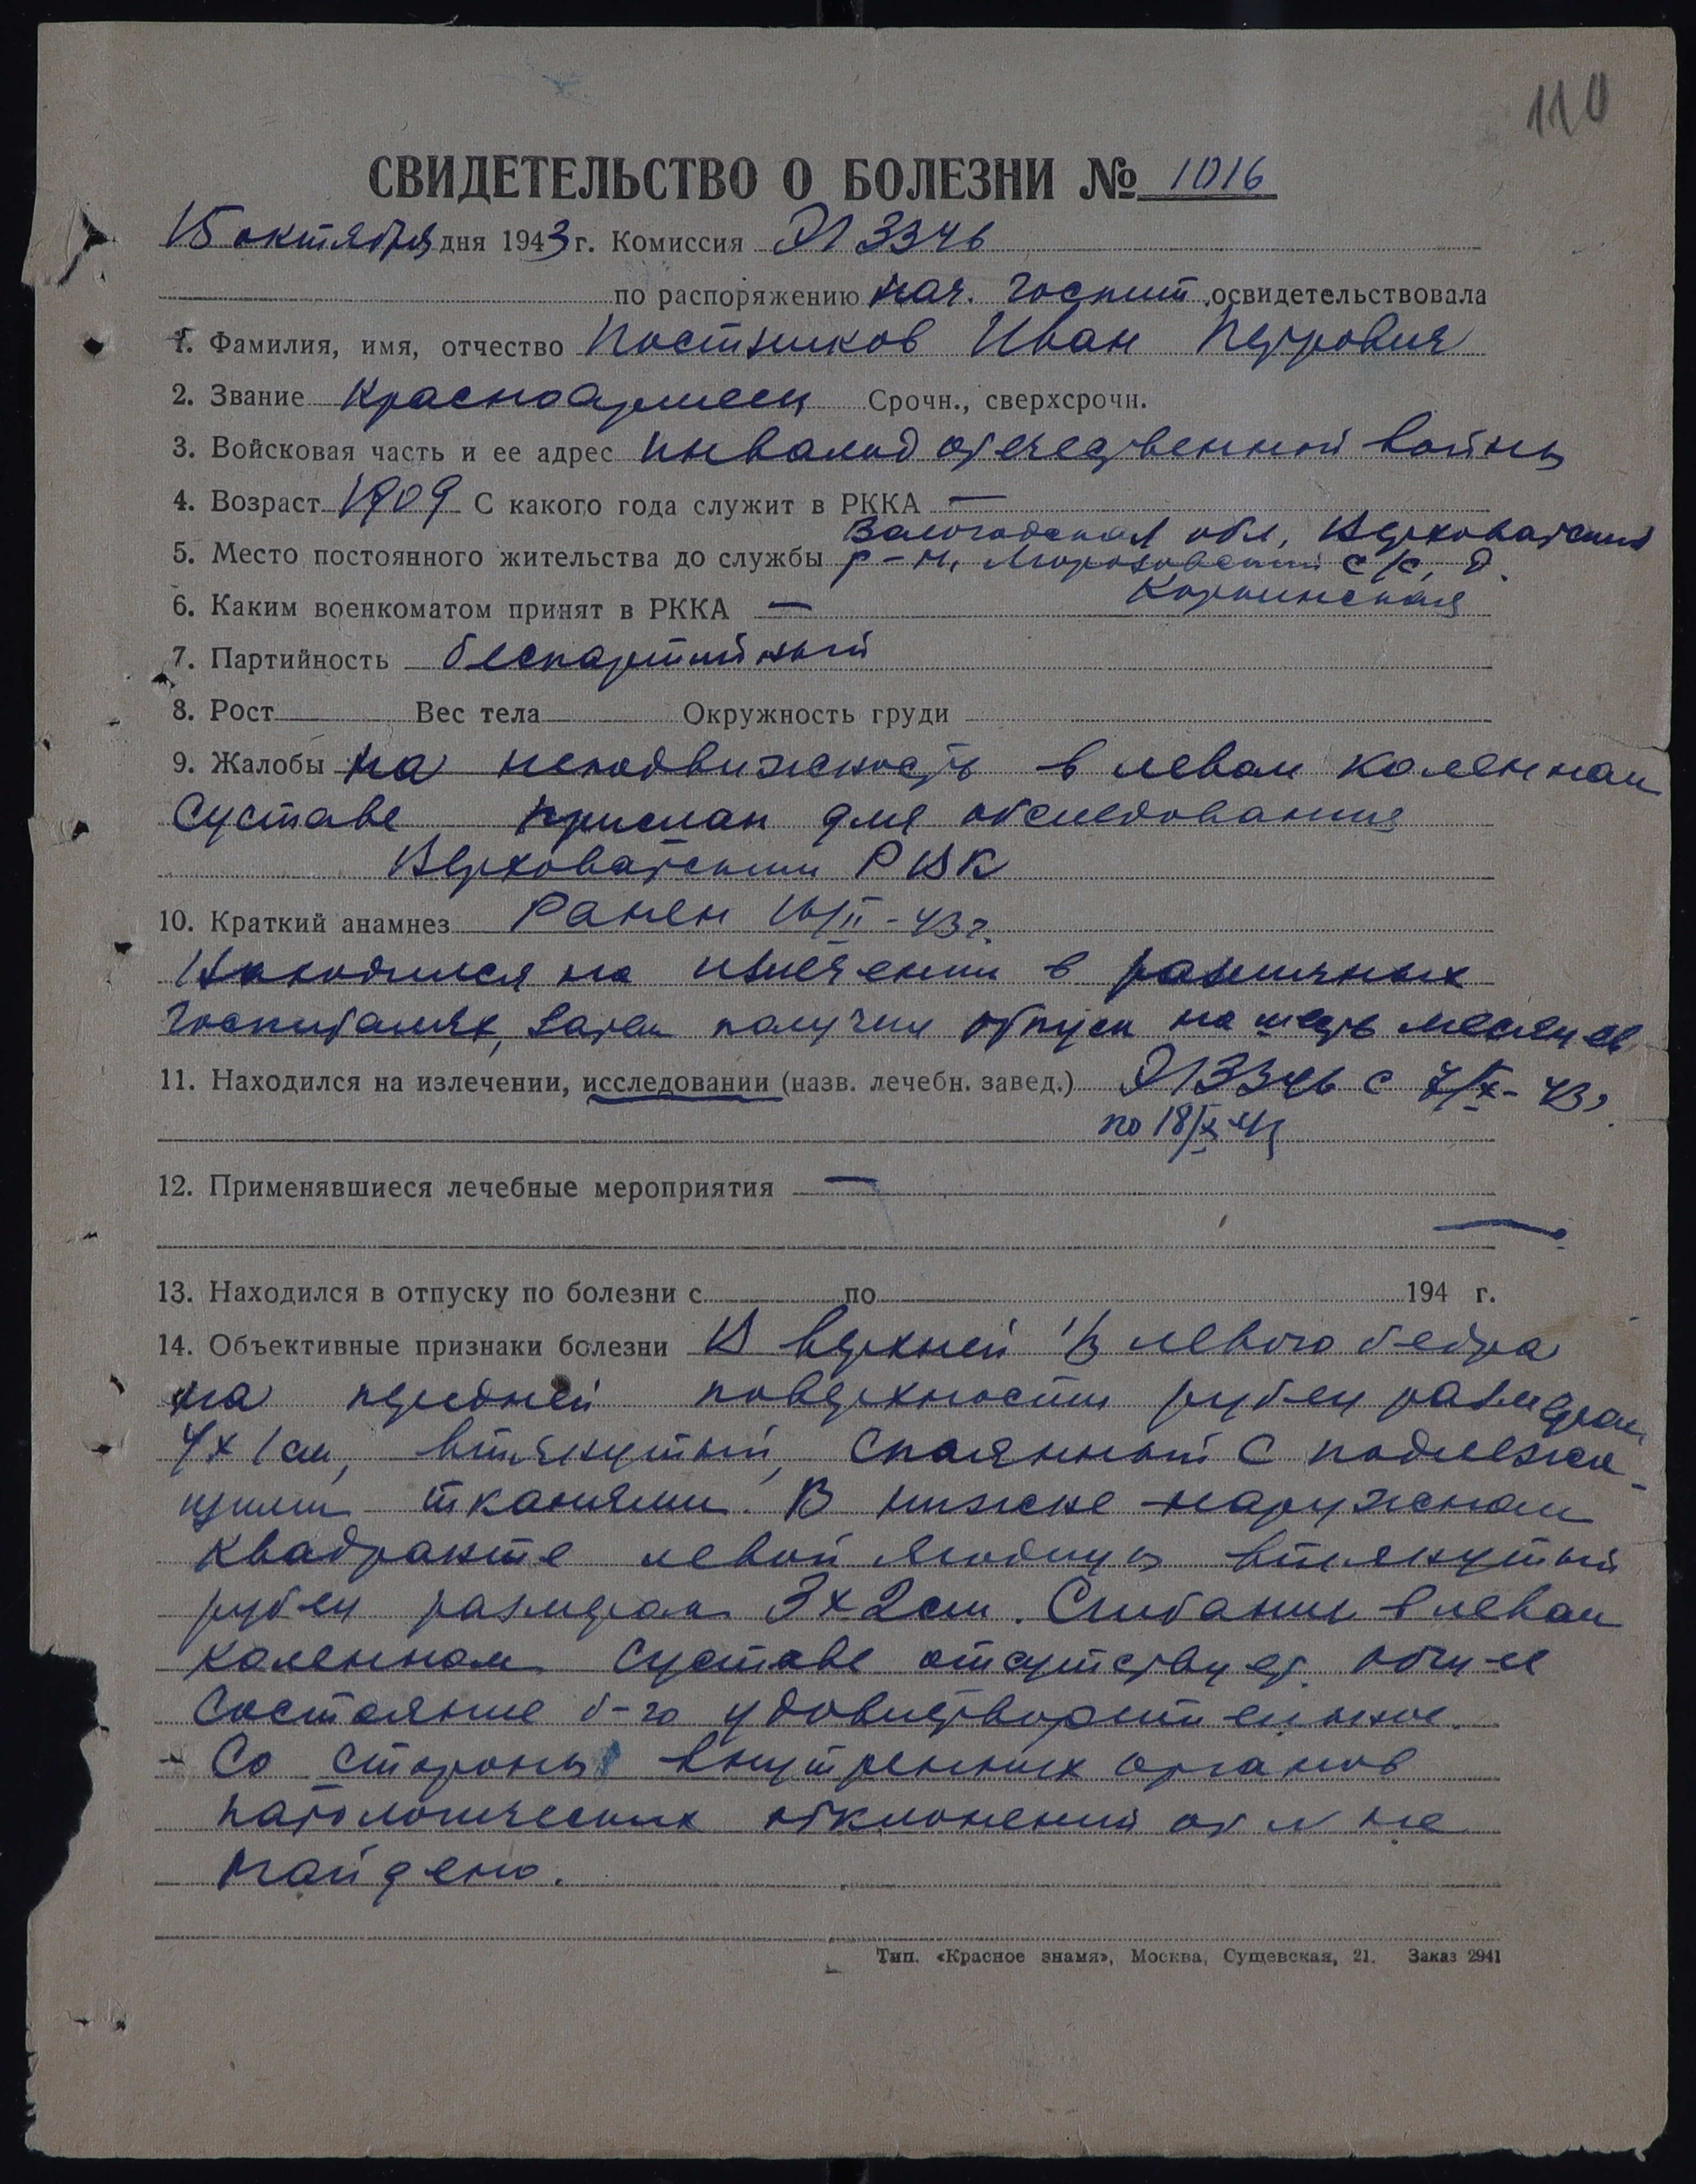 110
СВИДЕТЕЛЬСТВО О БОЛЕЗНИ № 1016
15 октября дня 1943 г. Комиссия ЭГ 3346
по распоряжению нач. госпит. освидетельствовала
1. Фамилия, имя, отчество Постников Иван Петрович
2. Звание Красноармеец Срочн., сверхсрочн.
3. Войсковая часть и ее адрес инвалид отечественной войны
4. Возраст 1909 С какого года служит в РККА —
Вологодская обл., Верховажский
5. Место постоянного жительства до службы р-н, Морозовский с/с, д.
6. Каким военкоматом принят в РККА —
7. Партийность беспартийный
8. Рост Вес тела Окружность груди
9. Жалобы на неподвижность в левом коленном
суставе, прислан для обследования
Верховажским РВК
10. Краткий анамнез Ранен 16/II-43 г.
Находился на излечении в различных
госпиталях, затем получил отпуск на шесть месяцев
11. Находился на излечении, исследовании (назв. лечебн. завед.) ЭГ 3346 с 7/X-43 г.
по 18/X 43
12. Применявшиеся лечебные мероприятия —
—
13. Находился в отпуску по болезни с по 194 г.
14. Объективные признаки болезни В верхней 1/3 левого бедра
на передней поверхности рубец размером
4х1 см, втянутый, спаянный с подлежа-
щими тканями. В нижне-наружном
квадранте левой ягодицы втянутый
рубец размером 3х2 см. Сгибание в левом
коленном суставе отсутствует. Общее
состояние б-го удовлетворительное.
Со стороны внутренних органов
патологических отклонений от N не
найдено.
Тип. «Красное знамя», Москва, Сущевская, 21. Заказ 2941